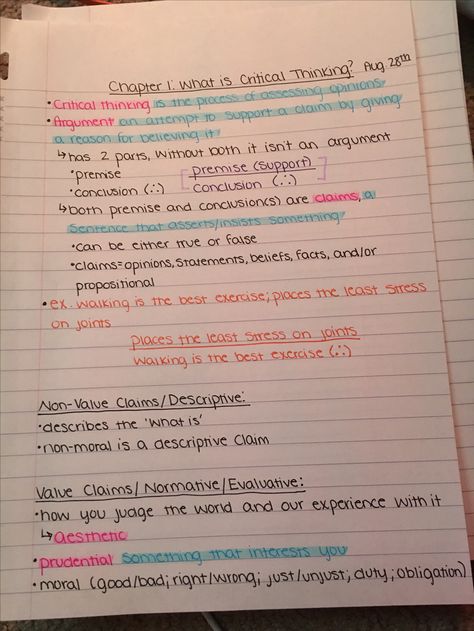 Chapter 1: What is Critical Thinking? Aug. 28th
• Critical thinking is the process of assessing opinions
• Argument an attempt to support a claim by giving
a reason for believing it
↳ has 2 parts, without both it isn't an argument
• premise
• conclusion (∴)
[premise (support)
conclusion (∴)]
↳ both premise and conclusion(s) are claims, a
sentence that asserts/insists something
• can be either true or false
• claims=opinions, statements, beliefs, facts, and/or
propositional
• ex. walking is the best exercise; places the least stress
on joints
places the least stress on joints
walking is the best exercise (∴)
Non-Value Claims/Descriptive:
• describes the 'what is'
• non-moral is a descriptive claim
Value Claims/Normative/Evaluative:
• how you judge the world and our experience with it
↳ aesthetic
• prudential something that interests you
• moral (good/bad; right/wrong; just/unjust; duty; obligation)